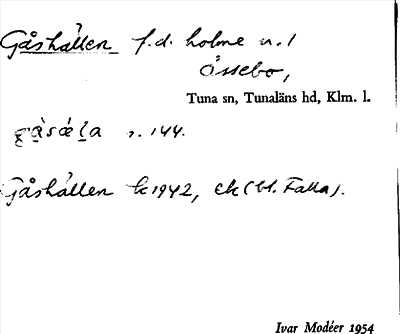 Gåshällen f.d. holme n.l
Össebo,
Tuna sn, Tunaläns hd, Klm. l.
s. 144.
Gåshällen k 1942, ek (bl. Falla).
Ivar Modéer 1954